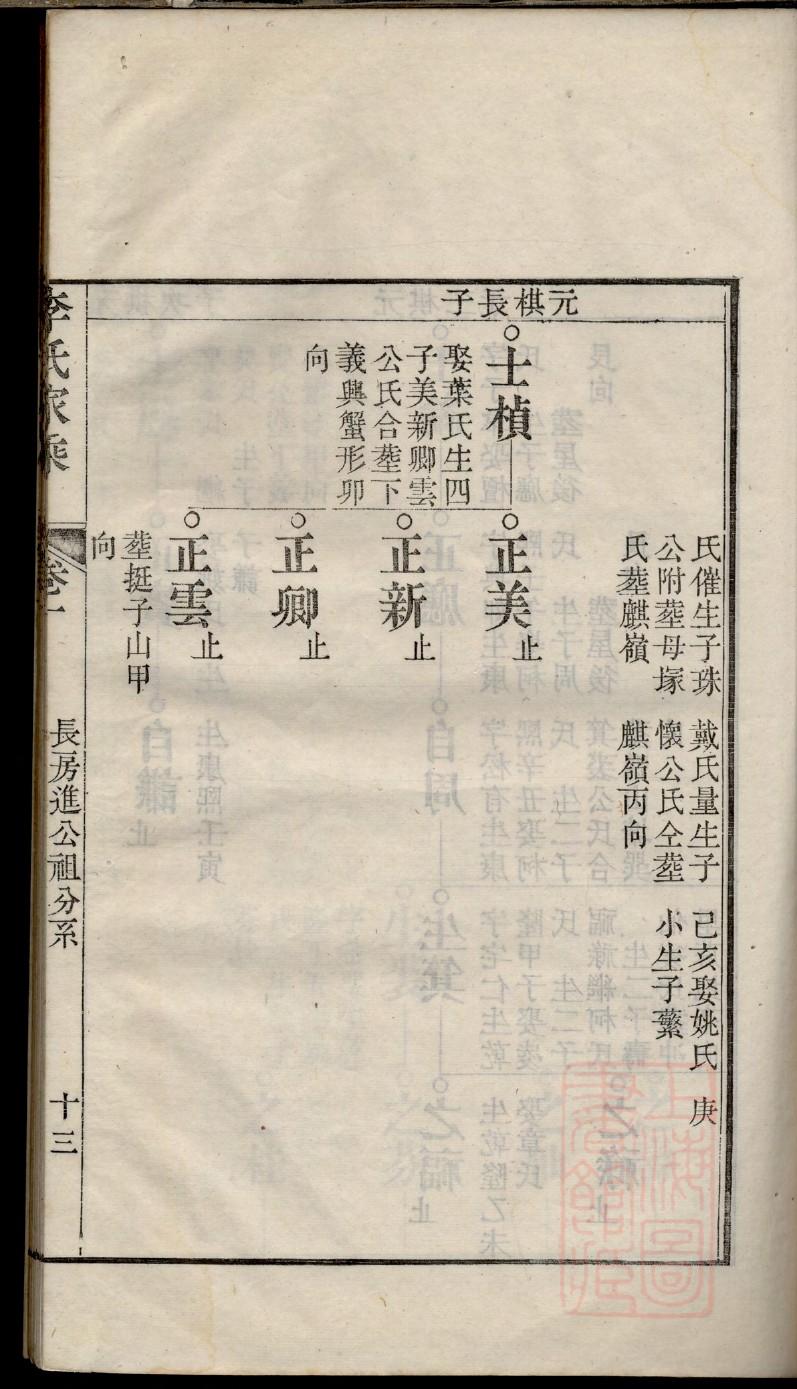 元棋長子
氏催生子珠
公附塟母塚
氏塟麒嶺
戴氏量生子
懷公氏仝塟
麒嶺丙向
己亥娶姚氏
小生子蘩
庚
士楨
娶葉氏生四
子美新卿雲
公氏合塟下
義興蟹形卯
向
正美
止
正新
止
正卿
止
正雲
止
塟挺子山甲
向
李氏家乘
卷一
長房進公祖分系
十三